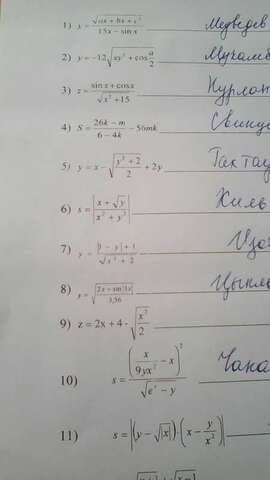 1) y = √(ax + bx + c²) / (15x − sin x) Медведев
2) y = −12√(xy² + cos a/2) Мухамб
3) z = (sin x + cos x) / √(x² + 15) Нурлан
4) S = (26k − m) / (6 − 4k) − 56mk Свинц
5) y = x − √((y³ + 2) / 2) + 2y Тактау
6) s = |(x + √y) / (x² + y³)| Хиль
7) y = (|1 − y| + 1) / √(x² + 2) Цой
8) y = √((2x − sin|4x|) / 3,56) Цыкло
9) z = 2x + 4 · √(x³ / 2)
10) s = (x / (9yx²) − x)² / √(eˣ − y) Чака
11) s = |(y − √|x|) · (x − y / x²)|